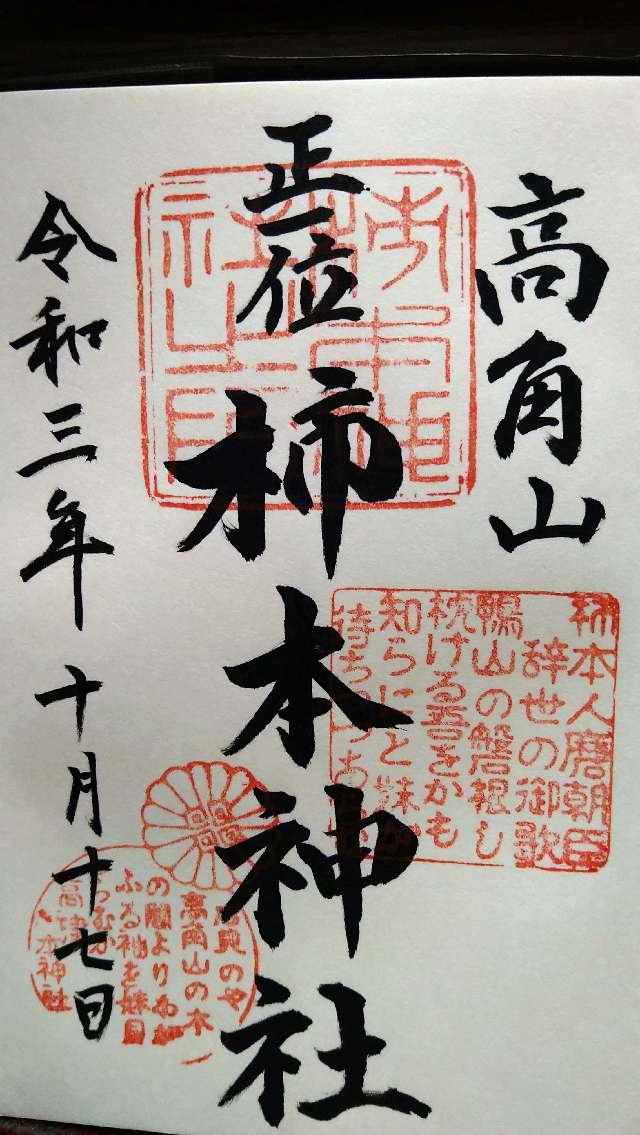 高角山
正一位
柿本神社
令和三年十月十七日
柿本人麿朝臣
辞世の御歌
鴨山の磐根し
枕ける吾をかも
知らにと妹
待ち
のや
高角山の木
の間より
ふる袖を妹
高津
本神社